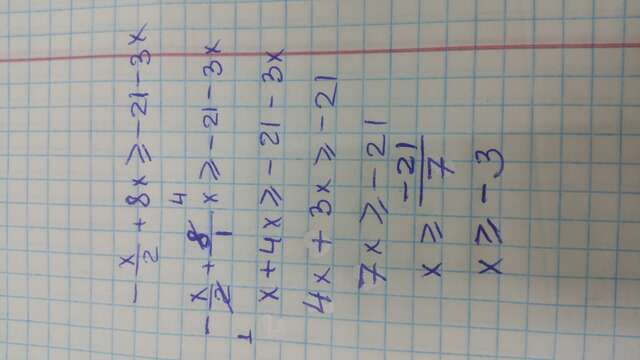 -x/2 + 8x ≥ -21 - 3x
-x/2 + 8/1 x ≥ -21 - 3x
1 4
x + 4x ≥ -21 - 3x
4x + 3x ≥ -21
7x ≥ -21
x ≥ -21/7
x ≥ -3